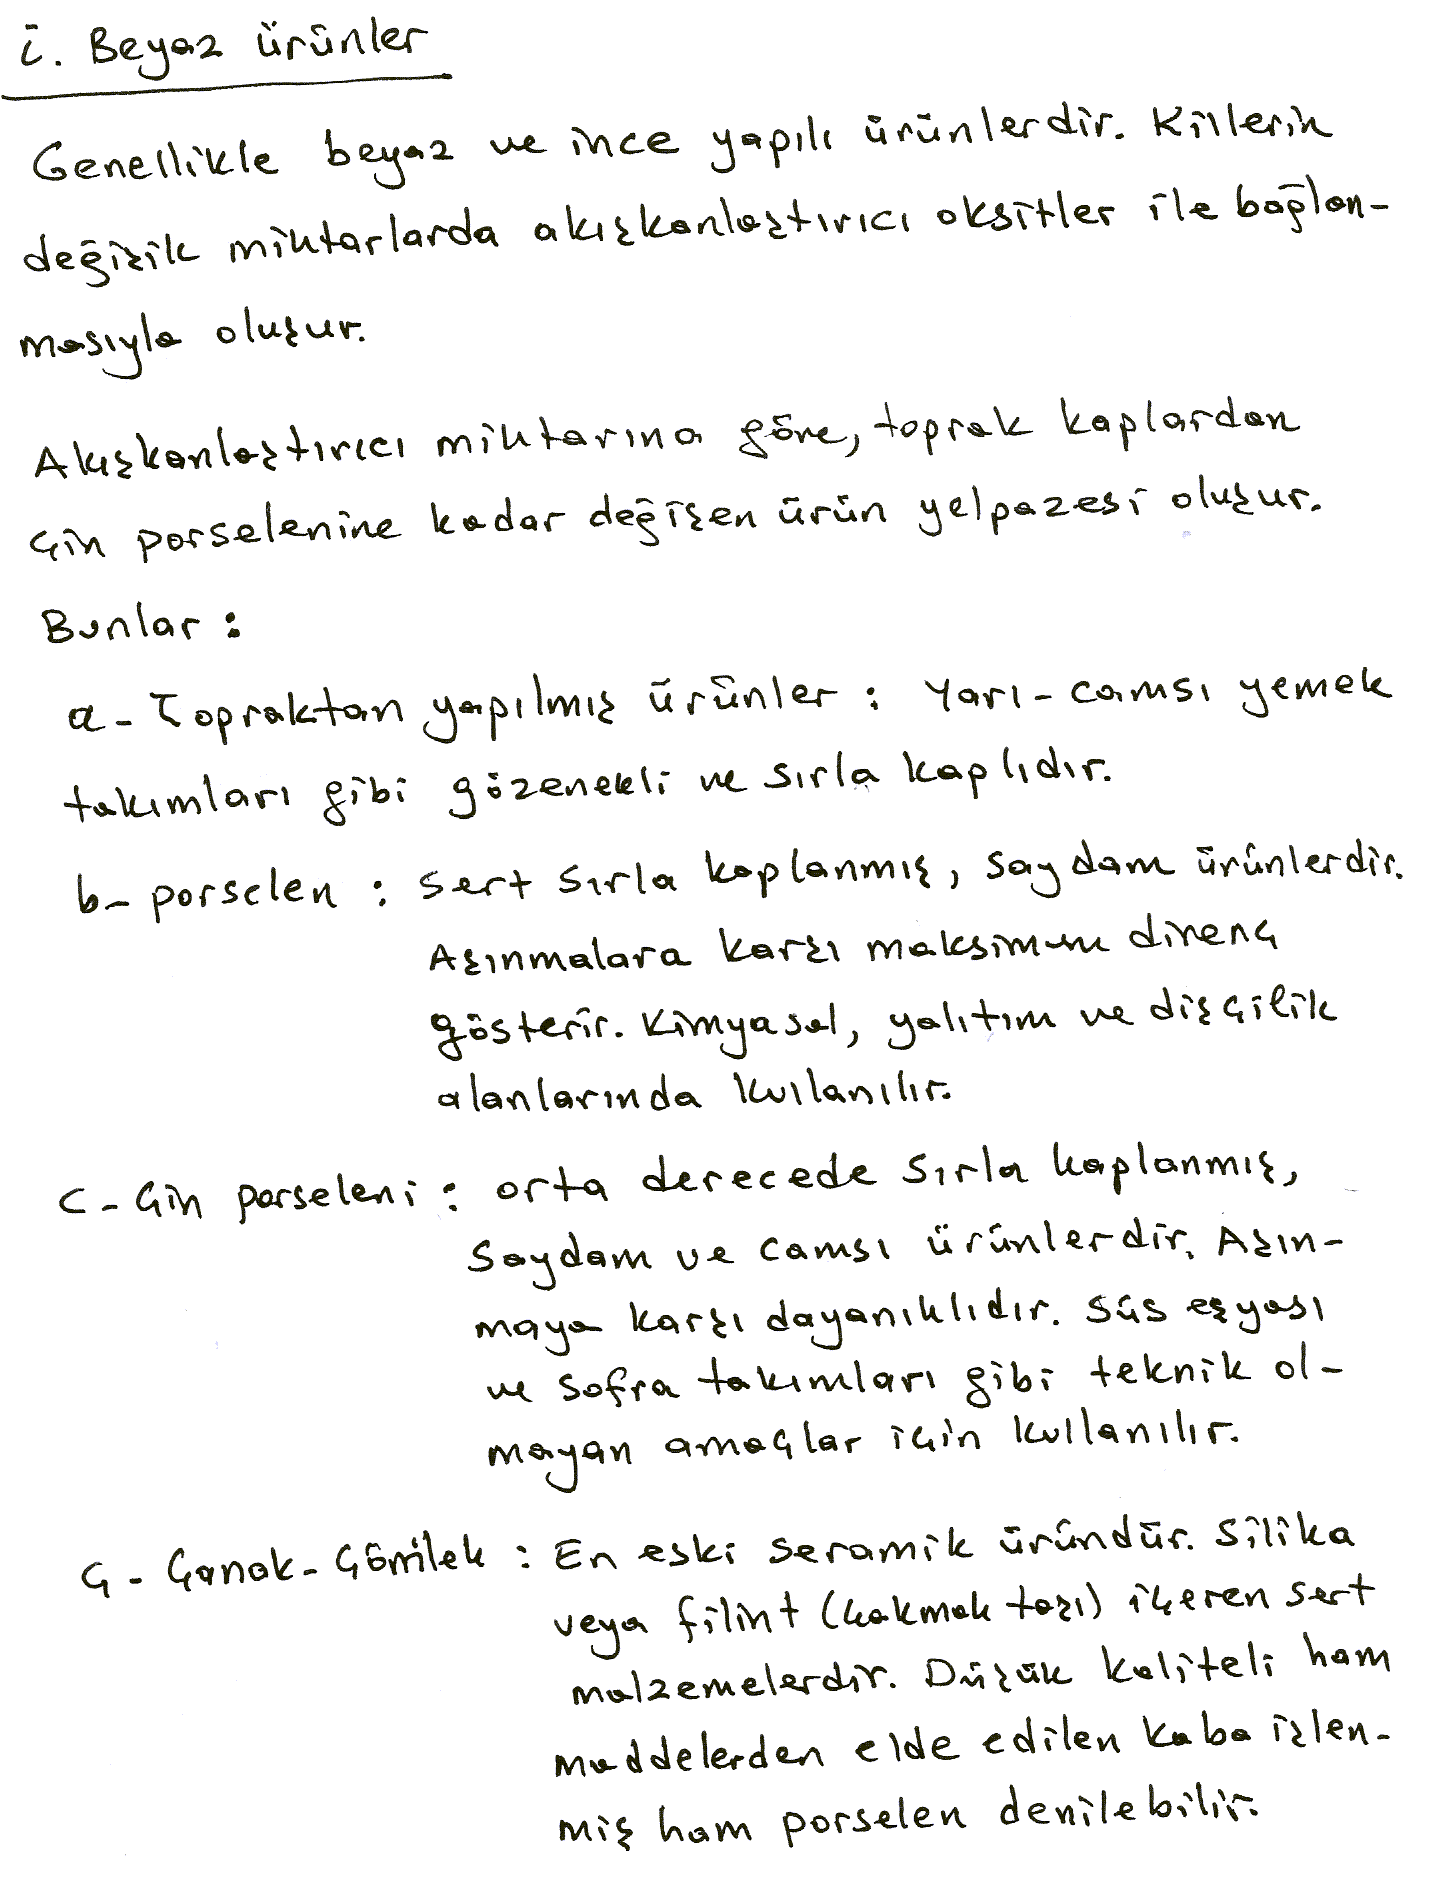 i. Beyaz ürünler
Genellikle beyaz ve ince yapılı ürünlerdir. Killerin
değişik miktarlarda akışkanlaştırıcı oksitler ile bağlan-
masıyla oluşur.
Akışkanlaştırıcı miktarına göre, toprak kaplardan
çin porselenine kadar değişen ürün yelpazesi oluşur.
Bunlar :
a- Topraktan yapılmış ürünler : Yarı-camsı yemek
takımları gibi gözenekli ve sırla kaplıdır.
b- porselen : sert sırla kaplanmış, saydam ürünlerdir.
Aşınmalara karşı maksimum direnç
gösterir. Kimyasal, yalıtım ve dişçilik
alanlarında kullanılır.
c- Çin porseleni : orta derecede sırla kaplanmış,
saydam ve camsı ürünlerdir. Aşın-
maya karşı dayanıklıdır. Süs eşyası
ve sofra takımları gibi teknik ol-
mayan amaçlar için kullanılır.
ç- Çanak-Çömlek : En eski seramik üründür. Silika
veya filint (çakmak taşı) içeren sert
malzemelerdir. Düşük kaliteli ham
maddelerden elde edilen kaba işlen-
miş ham porselen denilebilir.